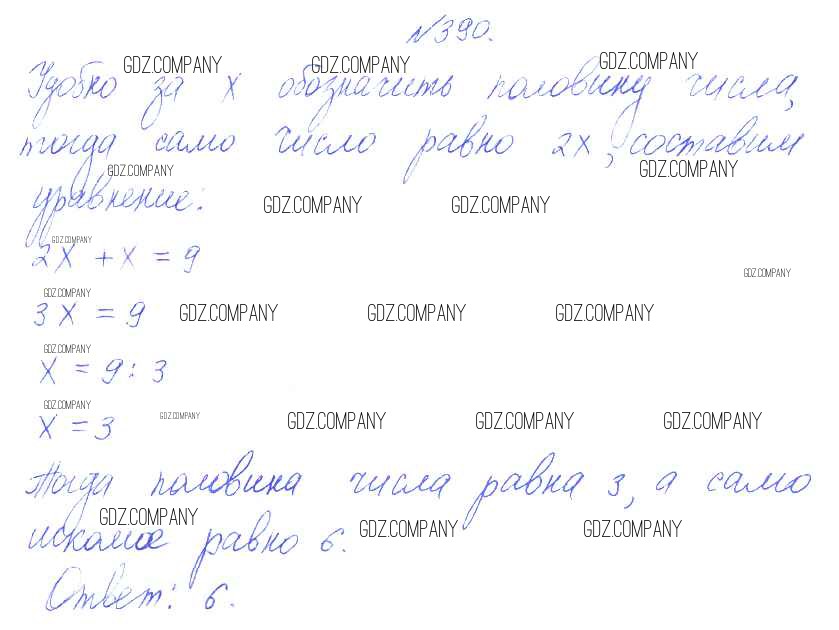 №390.
GDZ.COMPANY GDZ.COMPANY GDZ.COMPANY
Удобно за x обозначить половину числа,
тогда само число равно 2x, составим
GDZ.COMPANY GDZ.COMPANY
уравнение:
GDZ.COMPANY GDZ.COMPANY
GDZ.COMPANY
2x + x = 9
GDZ.COMPANY
GDZ.COMPANY
3x = 9
GDZ.COMPANY GDZ.COMPANY GDZ.COMPANY
GDZ.COMPANY
x = 9 : 3
GDZ.COMPANY
x = 3
GDZ.COMPANY GDZ.COMPANY GDZ.COMPANY GDZ.COMPANY
Тогда половина числа равна 3, а само
GDZ.COMPANY GDZ.COMPANY GDZ.COMPANY
искомое равно 6.
Ответ: 6.